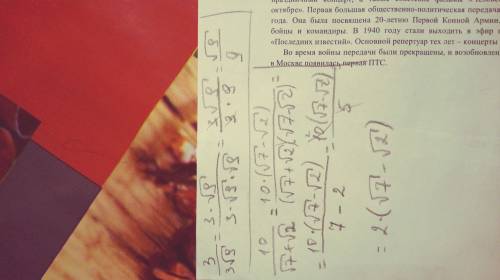 праздничный
октябре». Первая большая общественно-политическая передача
года. Она была посвящена 20-летию Первой Конной Армии,
бойцы и командиры. В 1940 году стали выходить в эфир
«Последних известий». Основной репертуар тех лет – концерты
Во время войны передачи были прекращены, и возобновлен
в Москве появилась первая ПТС.
3/3√9 = 3·√9/3·√9·√9 = 3√9/3·9 = √9/9
10/√7+√2 = 10·(√7-√2)/(√7+√2)(√7-√2) =
= 10·(√7-√2)/7-2 = 10(√7-√2)/5
= 2·(√7-√2)